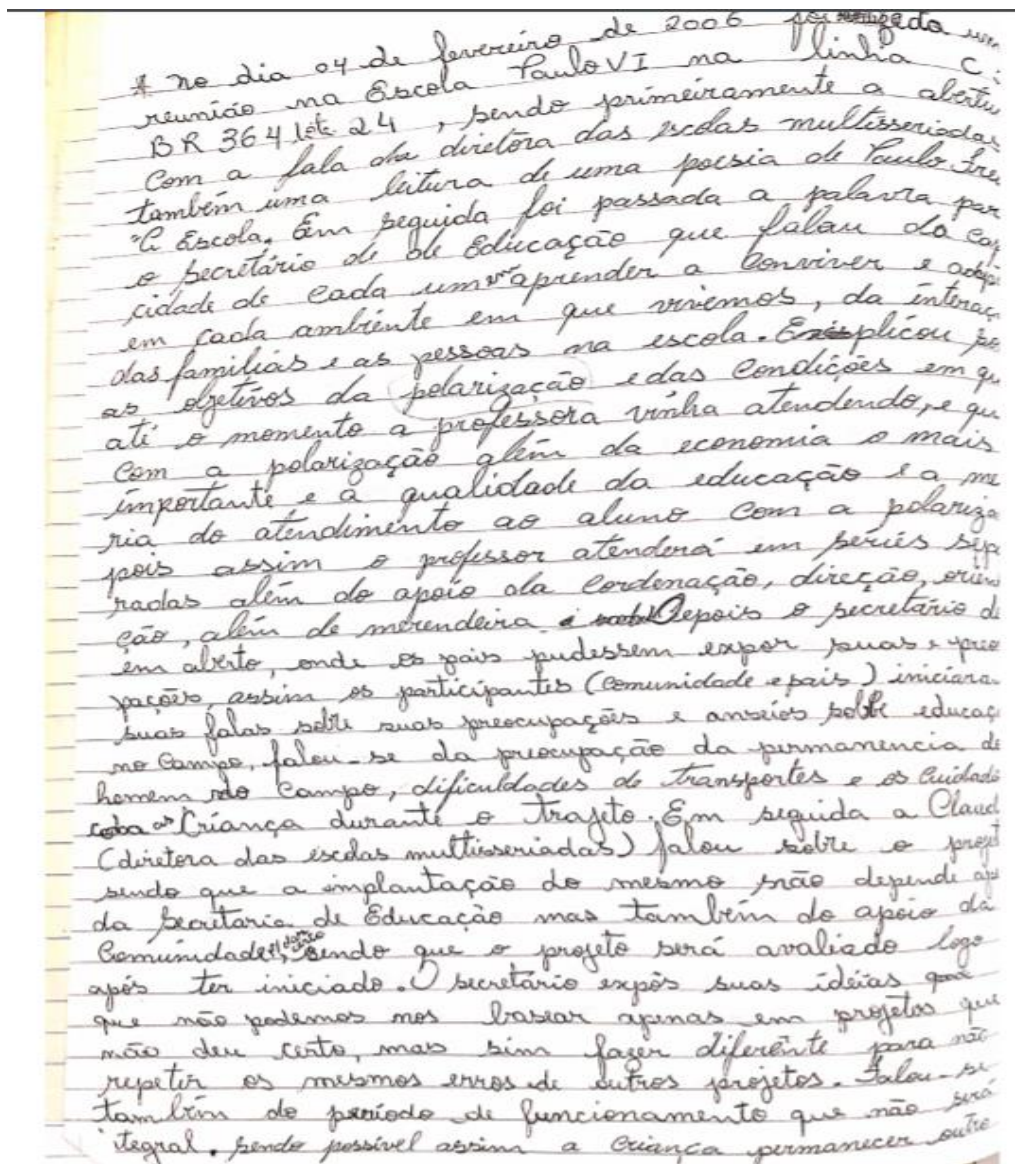 * no dia 04 de fevereiro de 2006 foi
reunião na Escola Paulo VI na linha C:
BR 364 lote 24, sendo primeiramente a abertu
Com a fala da diretora das escolas multisseriadas
também uma leitura de uma poesia de Paulo Frei
"A Escola. Em seguida foi passada a palavra par
o secretário de de Educação que falou da cap
cidade de cada um aprender a conviver e
em cada ambiente em que vivemos, da interaç
das familias e as pessoas na escola. Explicou
as objetivos da polarização e das Condições em qu
até o momento a professora vinha atendendo, e qu
com a polarização além da economia o mais
importante, e a qualidade da educação e a me
ria do atendimento ao aluno com a polariza
pois assim o professor atenderá em séries sepa
radas além do apoio da Cordenação, direção, orien
ção, além de merendeira. Depois o secretário d
em aberto, onde os pais pudessem expor suas preo
pações, assim os participantes (comunidade e pais) iniciara
suas falas sobre suas preocupações e anseios sobre educaç
no Campo, falou-se da preocupação da permanencia do
homem no Campo, dificuldades de transportes e os Cuidado
as Criança durante o Trajeto. Em seguida a Claud
(diretora das escolas multisseriadas) falou sobre o projet
sendo que a implantação do mesmo não depende ap
da Secretaria de Educação mas também do apoio da
Comunidade, sendo que o projeto será avaliado logo
após ter iniciado. O secretário expôs suas idéias
que não podemos nos basear apenas em projetos que
não deu certo, mas sim fazer diferente para não
repetir os mesmos erros de outros projetos. Falou-se
também do período de funcionamento que não será
itegral, sendo possível assim a Criança permanecer outro